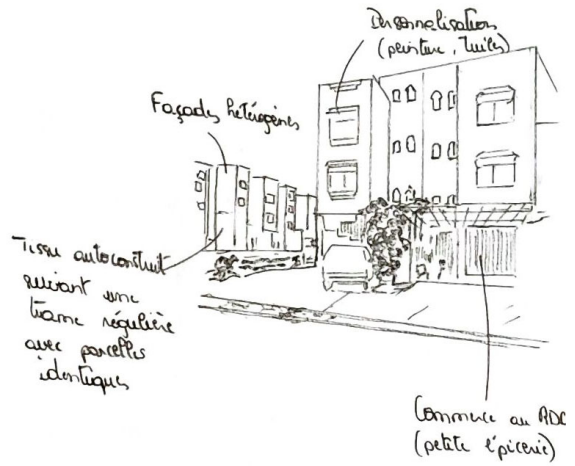 Personnalisation
(peinture, tuiles)
Façades hétérogènes
Tissu autoconstruit
suivant une
trame régulière
avec parcelles
identiques
Commerce au RDC
(petite épicerie)